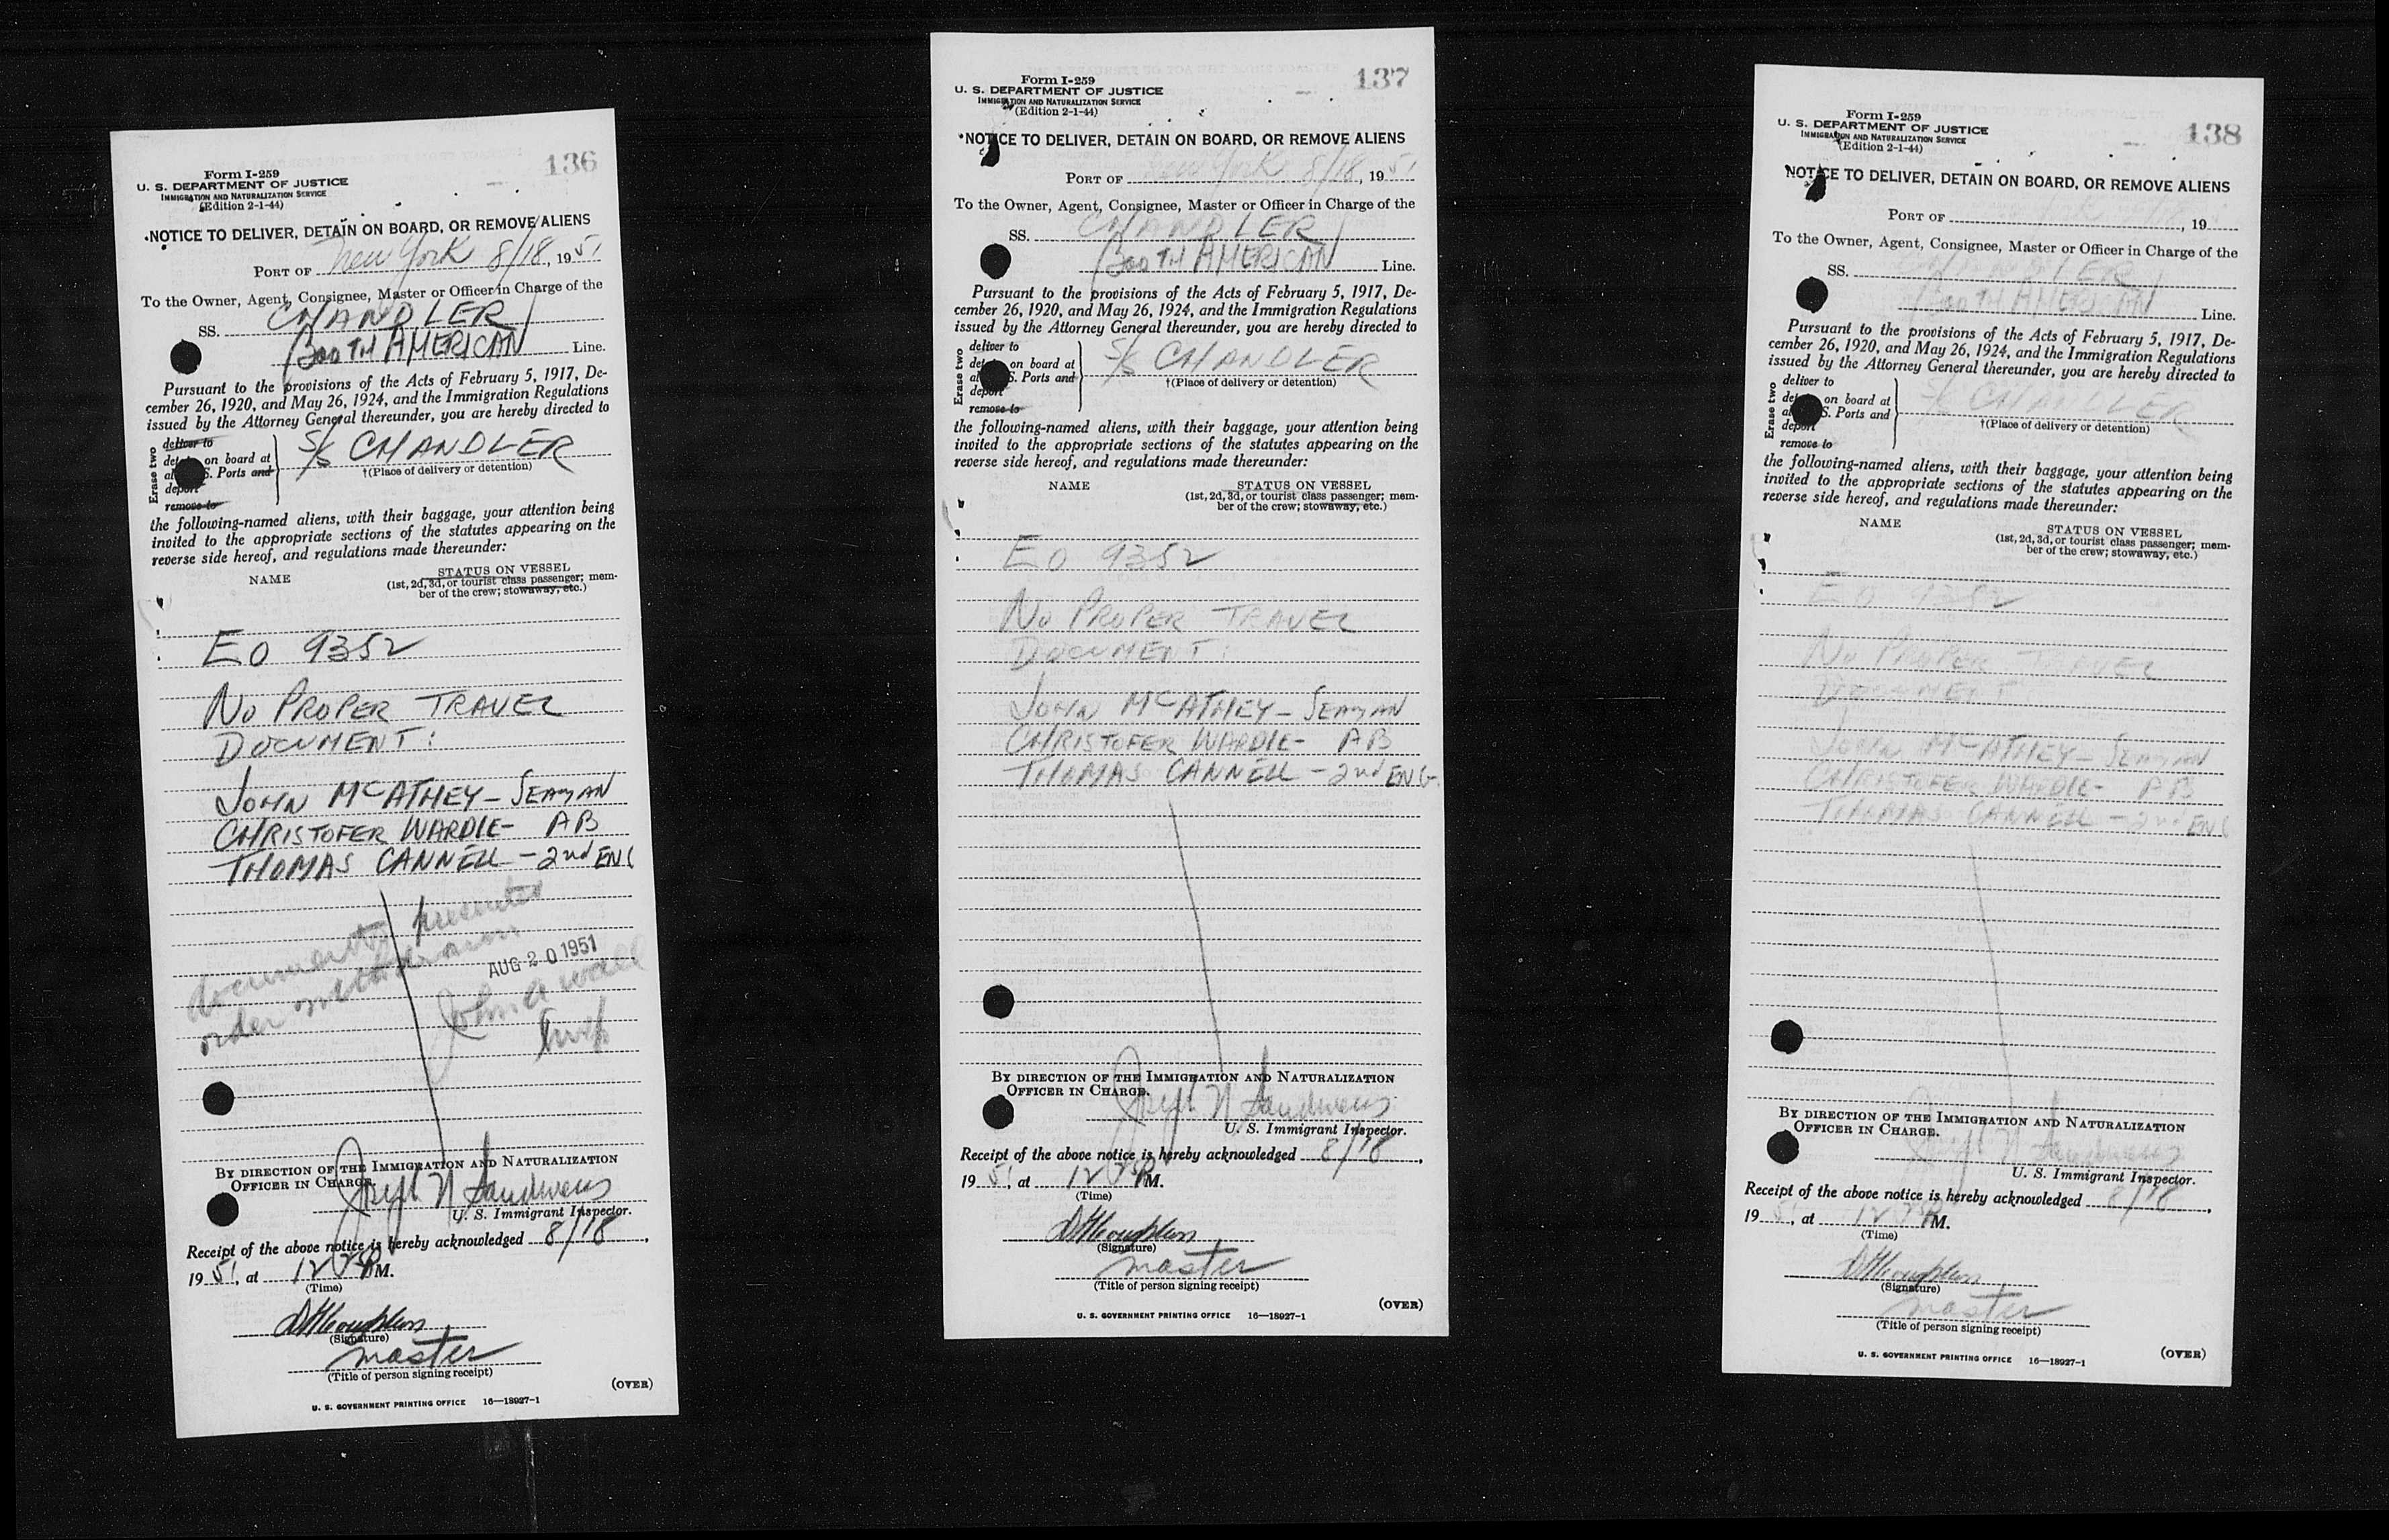 136
Form I-259
U. S. DEPARTMENT OF JUSTICE
IMMIGRATION AND NATURALIZATION SERVICE
(Edition 2-1-44)
NOTICE TO DELIVER, DETAIN ON BOARD, OR REMOVE ALIENS
PORT OF New York 8/18, 1951
To the Owner, Agent, Consignee, Master or Officer in Charge of the
SS. CHANDLER
BOOTH AMERICAN Line.
Pursuant to the provisions of the Acts of February 5, 1917, De-
cember 26, 1920, and May 26, 1924, and the Immigration Regulations
issued by the Attorney General thereunder, you are hereby directed to
Erase two
deliver to
on board at
S. Ports and
deport
remove to
S/S CHANDLER
†(Place of delivery or detention)
the following-named aliens, with their baggage, your attention being
invited to the appropriate sections of the statutes appearing on the
reverse side hereof, and regulations made thereunder:
NAME STATUS ON VESSEL
(1st, 2d, 3d, or tourist class passenger; mem-
ber of the crew; stowaway, etc.)
EO 9352
NO PROPER TRAVEL
DOCUMENT:
JOHN McATHEY - SEAMAN
CHRISTOFER WARDLE - AB
THOMAS CANNELL - 2nd ENG
documents presented
order
AUG 20 1951
John A
Insp
BY DIRECTION OF THE IMMIGRATION AND NATURALIZATION
OFFICER IN CHARGE.
Joseph N
U. S. Immigrant Inspector.
Receipt of the above notice is hereby acknowledged 8/18,
1951, at 12 PM.
(Time)
(Signature)
master
(Title of person signing receipt)
(OVER)
U. S. GOVERNMENT PRINTING OFFICE 16—18927-1
137
Form I-259
U. S. DEPARTMENT OF JUSTICE
IMMIGRATION AND NATURALIZATION SERVICE
(Edition 2-1-44)
NOTICE TO DELIVER, DETAIN ON BOARD, OR REMOVE ALIENS
PORT OF New York 8/18, 1951
To the Owner, Agent, Consignee, Master or Officer in Charge of the
SS. CHANDLER
BOOTH AMERICAN Line.
Pursuant to the provisions of the Acts of February 5, 1917, De-
cember 26, 1920, and May 26, 1924, and the Immigration Regulations
issued by the Attorney General thereunder, you are hereby directed to
Erase two
deliver to
on board at
S. Ports and
deport
remove to
S/S CHANDLER
†(Place of delivery or detention)
the following-named aliens, with their baggage, your attention being
invited to the appropriate sections of the statutes appearing on the
reverse side hereof, and regulations made thereunder:
NAME STATUS ON VESSEL
(1st, 2d, 3d, or tourist class passenger; mem-
ber of the crew; stowaway, etc.)
EO 9352
NO PROPER TRAVEL
DOCUMENT:
JOHN McATHEY - SEAMAN
CHRISTOFER WARDLE - AB
THOMAS CANNELL - 2nd ENG.
BY DIRECTION OF THE IMMIGRATION AND NATURALIZATION
OFFICER IN CHARGE.
Joseph N
U. S. Immigrant Inspector.
Receipt of the above notice is hereby acknowledged 8/18,
1951, at 12 PM.
(Time)
(Signature)
master
(Title of person signing receipt)
(OVER)
U. S. GOVERNMENT PRINTING OFFICE 16—18927-1
138
Form I-259
U. S. DEPARTMENT OF JUSTICE
IMMIGRATION AND NATURALIZATION SERVICE
(Edition 2-1-44)
NOTICE TO DELIVER, DETAIN ON BOARD, OR REMOVE ALIENS
PORT OF , 19
To the Owner, Agent, Consignee, Master or Officer in Charge of the
SS. CHANDLER
BOOTH AMERICAN Line.
Pursuant to the provisions of the Acts of February 5, 1917, De-
cember 26, 1920, and May 26, 1924, and the Immigration Regulations
issued by the Attorney General thereunder, you are hereby directed to
Erase two
deliver to
on board at
S. Ports and
deport
remove to
S/S CHANDLER
†(Place of delivery or detention)
the following-named aliens, with their baggage, your attention being
invited to the appropriate sections of the statutes appearing on the
reverse side hereof, and regulations made thereunder:
NAME STATUS ON VESSEL
(1st, 2d, 3d, or tourist class passenger; mem-
ber of the crew; stowaway, etc.)
EO 9352
NO PROPER TRAVEL
DOCUMENT
JOHN McATHEY - SEAMAN
CHRISTOFER WARDLE - AB
THOMAS CANNELL - 2nd ENG
BY DIRECTION OF THE IMMIGRATION AND NATURALIZATION
OFFICER IN CHARGE.
Joseph N
U. S. Immigrant Inspector.
Receipt of the above notice is hereby acknowledged 8/18,
1951, at 12 PM.
(Time)
(Signature)
master
(Title of person signing receipt)
(OVER)
U. S. GOVERNMENT PRINTING OFFICE 16—18927-1